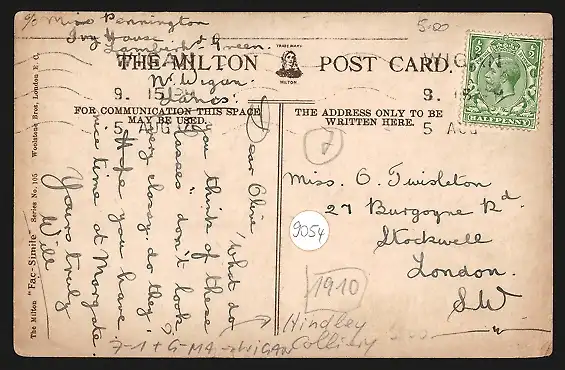 c/o Miss Pennington
Ivy House
Lamberhd Green.
Nr. Wigan.
Lancs.
5.00
THE MILTON
TRADE MARK
MILTON
POST CARD.
WIGAN
9. 15PM
5 AUG
9.
5 AUG
HALFPENNY
FOR COMMUNICATION THIS SPACE
MAY BE USED.
THE ADDRESS ONLY TO BE
WRITTEN HERE.
Dear Olive, What do
you think of these
"lasses" don't look
very classy. do they?
Hope you have
nice time at Margate.
Yours truly
Will
7
Miss. O. Twisleton
27 Burgoyne Rd.
Stockwell
London.
S.W
9054
1910
Hindley
Colliery
WIGAN
The Milton "Fac-Simile" Series No. 105
Woolstone Bros., London E. C.